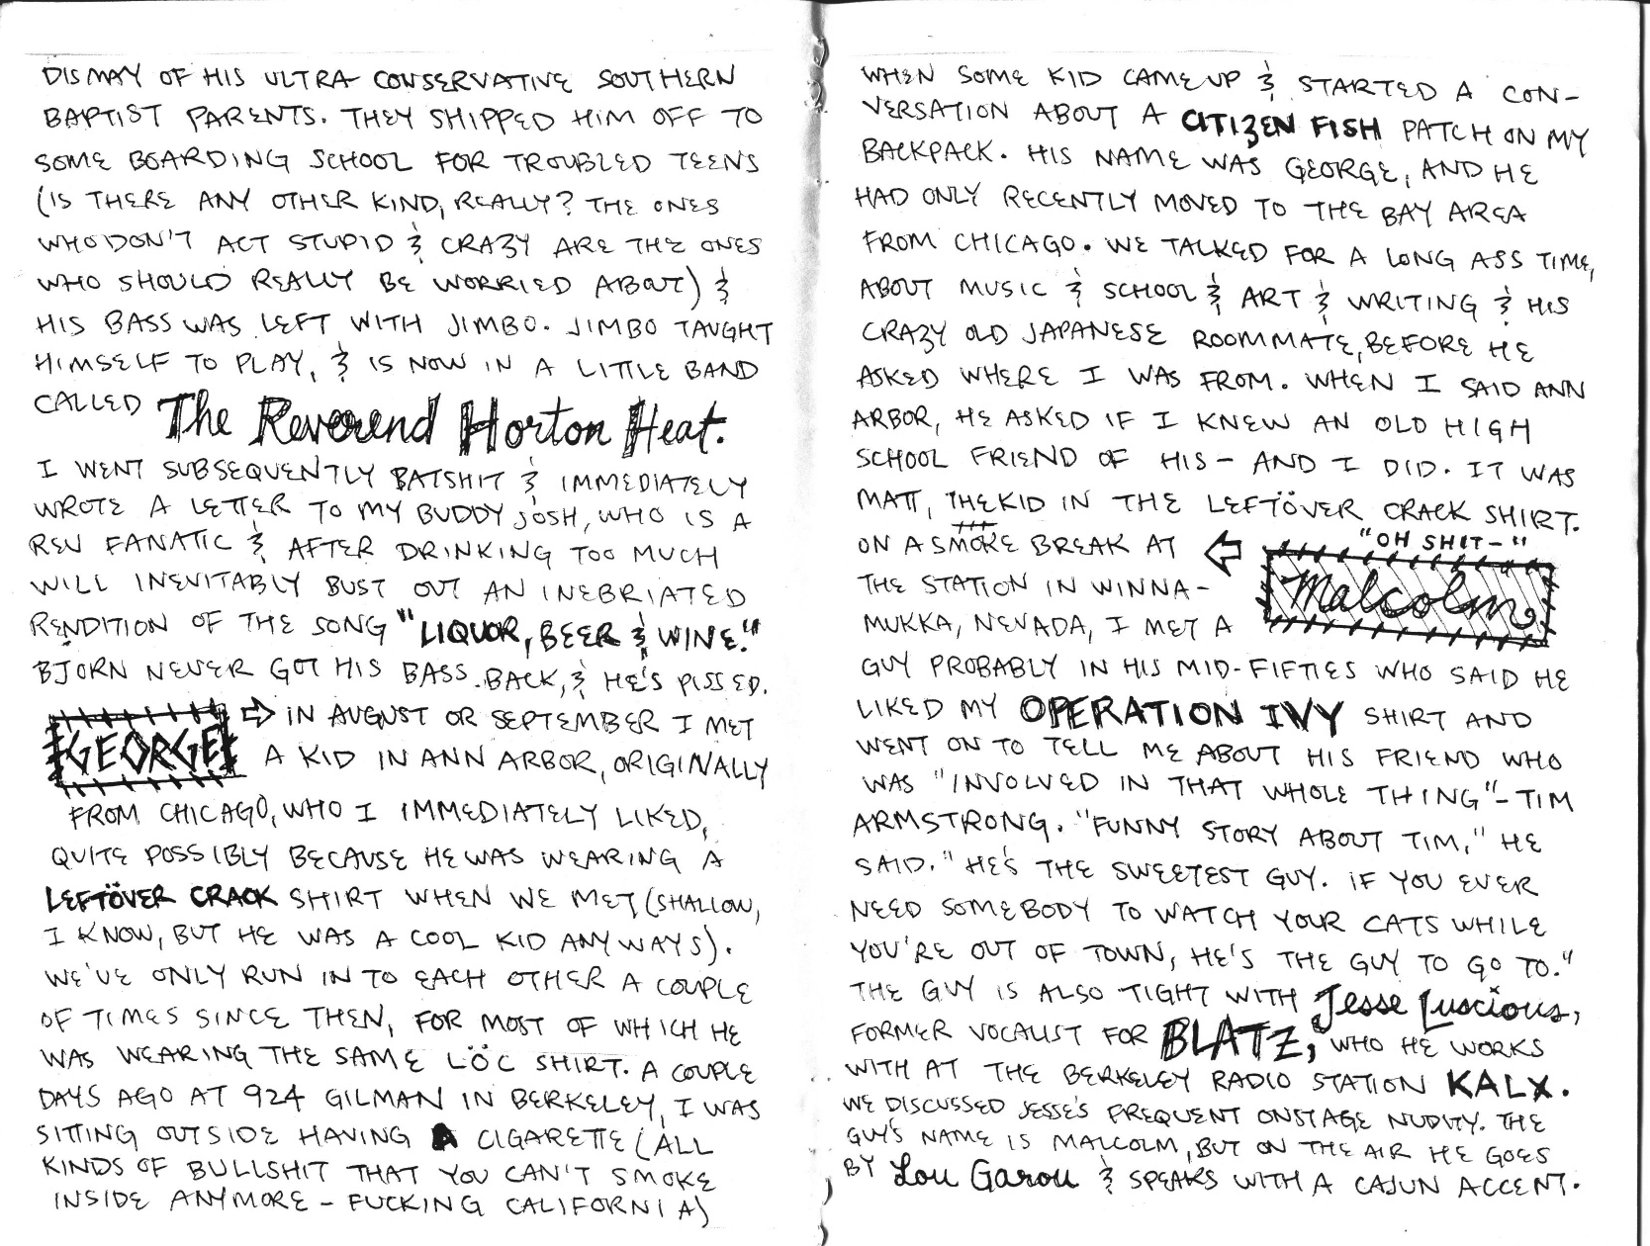 DISMAY OF HIS ULTRA CONSERVATIVE SOUTHERN
BAPTIST PARENTS. THEY SHIPPED HIM OFF TO
SOME BOARDING SCHOOL FOR TROUBLED TEENS
(IS THERE ANY OTHER KIND, REALLY? THE ONES
WHO DON'T ACT STUPID & CRAZY ARE THE ONES
WHO SHOULD REALLY BE WORRIED ABOUT) &
HIS BASS WAS LEFT WITH JIMBO. JIMBO TAUGHT
HIMSELF TO PLAY, & IS NOW IN A LITTLE BAND
CALLED The Reverend Horton Heat.
I WENT SUBSEQUENTLY BATSHIT & IMMEDIATELY
WROTE A LETTER TO MY BUDDY JOSH, WHO IS A
REV FANATIC & AFTER DRINKING TOO MUCH
WILL INEVITABLY BUST OUT AN INEBRIATED
RENDITION OF THE SONG "LIQUOR, BEER & WINE."
BJORN NEVER GOT HIS BASS BACK, & HE'S PISSED.
GEORGE ⇨ IN AUGUST OR SEPTEMBER I MET
A KID IN ANN ARBOR, ORIGINALLY
FROM CHICAGO, WHO I IMMEDIATELY LIKED,
QUITE POSSIBLY BECAUSE HE WAS WEARING A
LEFTÖVER CRACK SHIRT WHEN WE MET (SHALLOW,
I KNOW, BUT HE WAS A COOL KID ANYWAYS).
WE'VE ONLY RUN IN TO EACH OTHER A COUPLE
OF TIMES SINCE THEN, FOR MOST OF WHICH HE
WAS WEARING THE SAME LÖC SHIRT. A COUPLE
DAYS AGO AT 924 GILMAN IN BERKELEY, I WAS
SITTING OUTSIDE HAVING A CIGARETTE (ALL
KINDS OF BULLSHIT THAT YOU CAN'T SMOKE
INSIDE ANYMORE - FUCKING CALIFORNIA)
WHEN SOME KID CAME UP & STARTED A CON-
VERSATION ABOUT A CITIZEN FISH PATCH ON MY
BACKPACK. HIS NAME WAS GEORGE, AND HE
HAD ONLY RECENTLY MOVED TO THE BAY AREA
FROM CHICAGO. WE TALKED FOR A LONG ASS TIME,
ABOUT MUSIC & SCHOOL & ART & WRITING & HIS
CRAZY OLD JAPANESE ROOMMATE, BEFORE HE
ASKED WHERE I WAS FROM. WHEN I SAID ANN
ARBOR, HE ASKED IF I KNEW AN OLD HIGH
SCHOOL FRIEND OF HIS - AND I DID. IT WAS
MATT, THE KID IN THE LEFTÖVER CRACK SHIRT.
"OH SHIT-"
ON A SMOKE BREAK AT ⇦ Malcolm
THE STATION IN WINNA-
MUKKA, NEVADA, I MET A
GUY PROBABLY IN HIS MID-FIFTIES WHO SAID HE
LIKED MY OPERATION IVY SHIRT AND
WENT ON TO TELL ME ABOUT HIS FRIEND WHO
WAS "INVOLVED IN THAT WHOLE THING" - TIM
ARMSTRONG. "FUNNY STORY ABOUT TIM," HE
SAID. "HE'S THE SWEETEST GUY. IF YOU EVER
NEED SOMEBODY TO WATCH YOUR CATS WHILE
YOU'RE OUT OF TOWN, HE'S THE GUY TO GO TO."
THE GUY IS ALSO TIGHT WITH Jesse Luscious,
FORMER VOCALIST FOR BLATZ, WHO HE WORKS
WITH AT THE BERKELEY RADIO STATION KALX.
WE DISCUSSED JESSE'S FREQUENT ONSTAGE NUDITY. THE
GUY'S NAME IS MALCOLM, BUT ON THE AIR HE GOES
BY Lou Garou & SPEAKS WITH A CAJUN ACCENT.